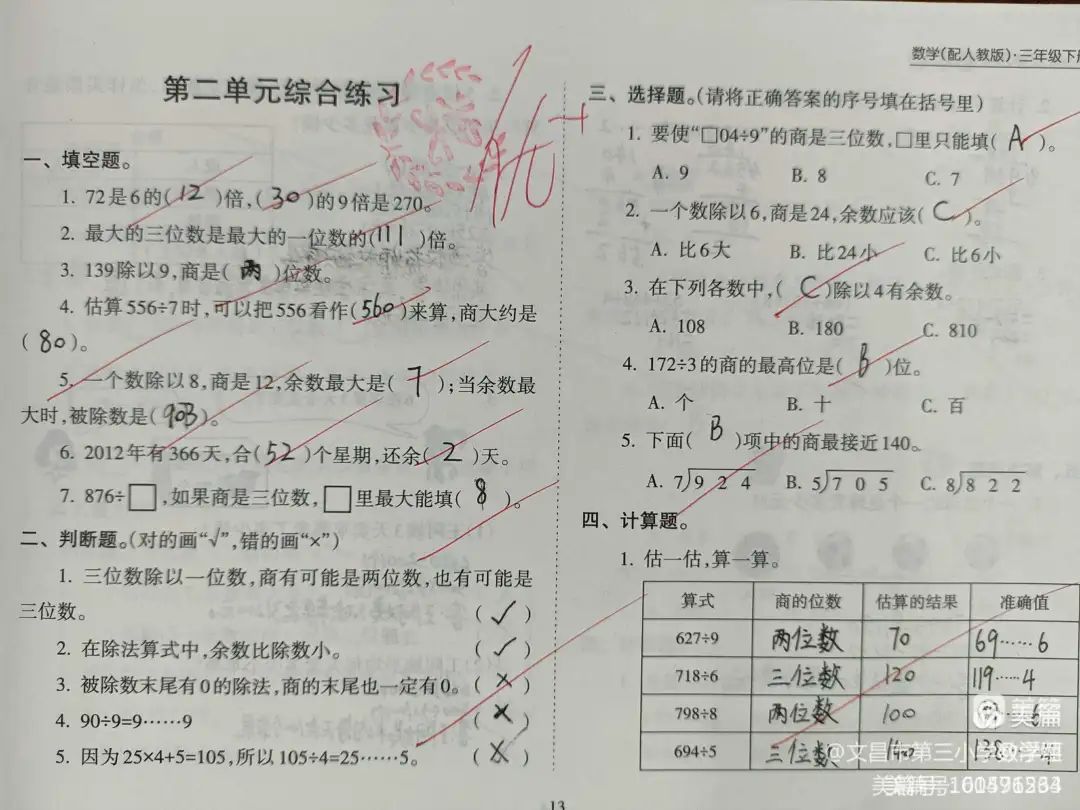 数学(配人教版)·三年级下册
第二单元综合练习
优+
一、填空题。
1. 72是6的(12)倍,(30)的9倍是270。
2. 最大的三位数是最大的一位数的(111)倍。
3. 139除以9,商是(两)位数。
4. 估算556÷7时,可以把556看作(560)来算,商大约是
(80)。
5. 一个数除以8,商是12,余数最大是(7);当余数最
大时,被除数是(903)。
6. 2012年有366天,合(52)个星期,还余(2)天。
7. 876÷□,如果商是三位数,□里最大能填(8)。
二、判断题。(对的画“√”,错的画“×”)
1. 三位数除以一位数,商有可能是两位数,也有可能是
三位数。 (√)
2. 在除法算式中,余数比除数小。 (√)
3. 被除数末尾有0的除法,商的末尾也一定有0。 (×)
4. 90÷9=9……9 (×)
5. 因为25×4+5=105,所以105÷4=25……5。 (×)
三、选择题。(请将正确答案的序号填在括号里)
1. 要使“□04÷9”的商是三位数,□里只能填(A)。
A. 9 B. 8 C. 7
2. 一个数除以6,商是24,余数应该(C)。
A. 比6大 B. 比24小 C. 比6小
3. 在下列各数中,(C)除以4有余数。
A. 108 B. 180 C. 810
4. 172÷3的商的最高位是(B)位。
A. 个 B. 十 C. 百
5. 下面(B)项中的商最接近140。
A. 7)924 B. 5)705 C. 8)822
四、计算题。
1. 估一估,算一算。
算式 商的位数 估算的结果 准确值
627÷9 两位数 70 69……6
718÷6 三位数 120 119……4
798÷8 两位数 100 6
694÷5 三位数 140 138 4
美篇
@文昌市第三小学数学组
美篇号:
13